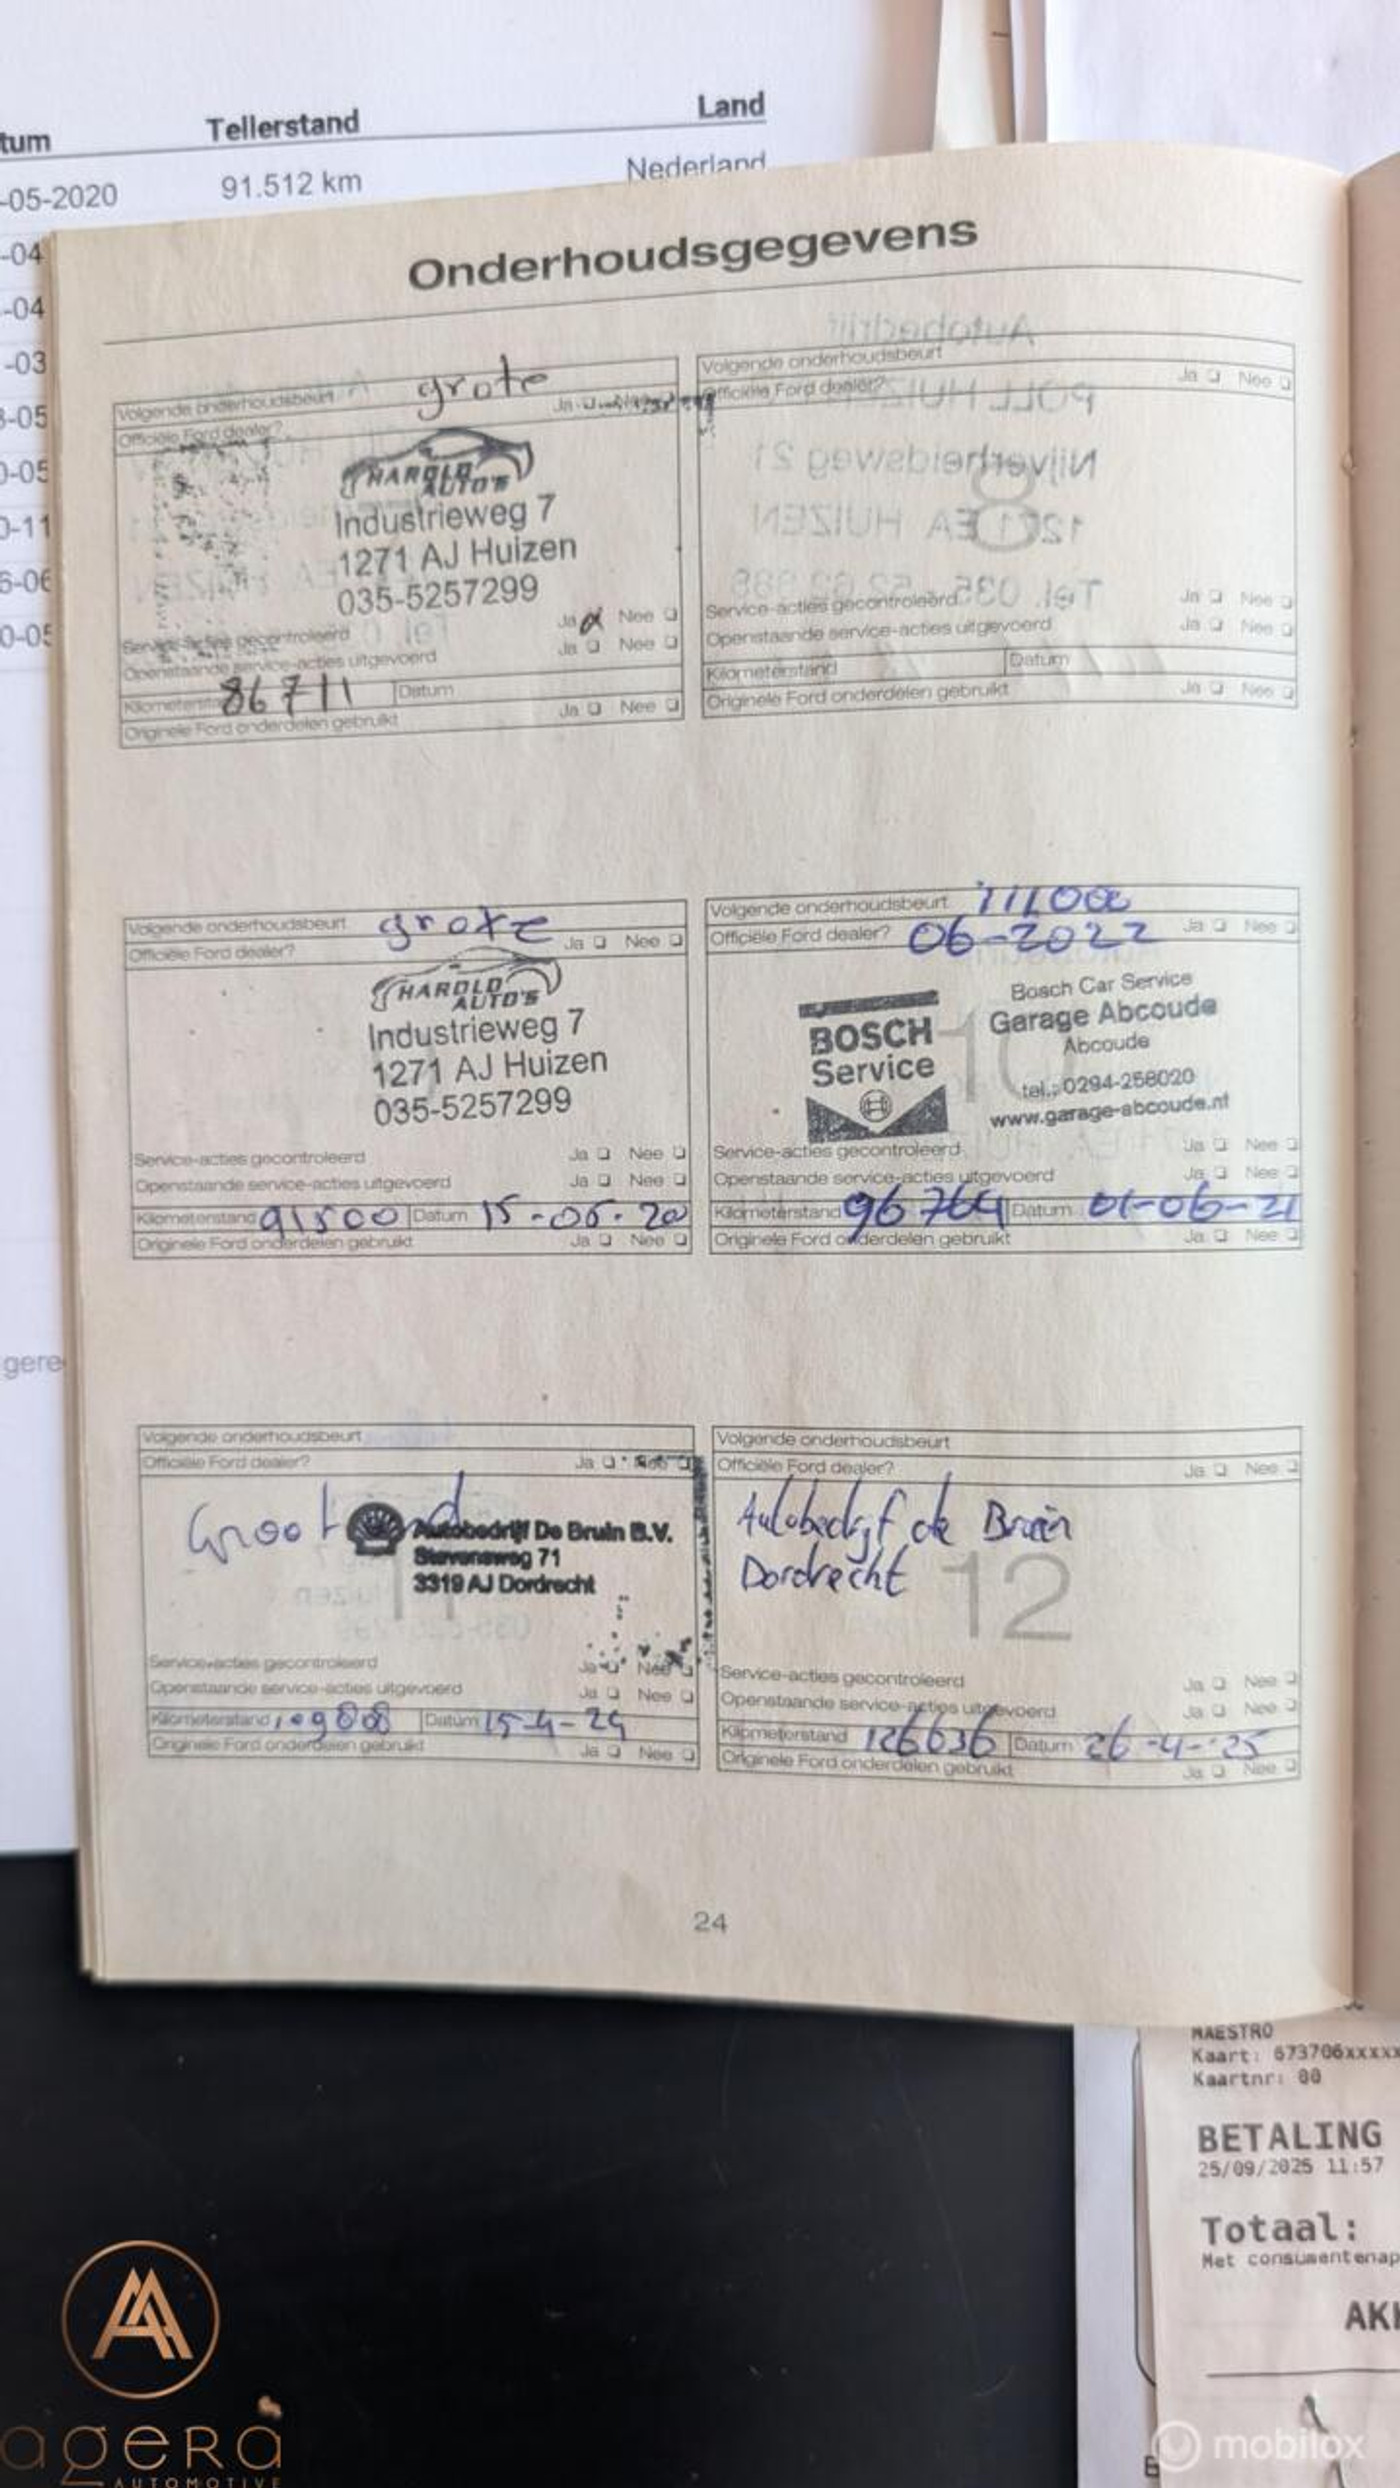 tum Tellerstand Land
-05-2020 91.512 km Nederland
-04
-04
-03
-05
-05
-11
-06
-05
gere
Onderhoudsgegevens
Volgende onderhoudsbeurt grote
Officiële Ford dealer? Ja
HAROLD
AUTO'S
Industrieweg 7
1271 AJ Huizen
035-5257299
Service-acties gecontroleerd Ja Nee
Openstaande service-acties uitgevoerd Ja Nee
Kilometerstand 86711 Datum
Originele Ford onderdelen gebruikt Ja Nee
Volgende onderhoudsbeurt
Officiële Ford dealer? Ja Nee
8
Service-acties gecontroleerd Ja Nee
Openstaande service-acties uitgevoerd Ja Nee
Kilometerstand Datum
Originele Ford onderdelen gebruikt Ja Nee
Volgende onderhoudsbeurt grote
Officiële Ford dealer? Ja Nee
HAROLD
AUTO'S
Industrieweg 7
1271 AJ Huizen
035-5257299
Service-acties gecontroleerd Ja Nee
Openstaande service-acties uitgevoerd Ja Nee
Kilometerstand 91500 Datum 15-06-20
Originele Ford onderdelen gebruikt Ja Nee
Volgende onderhoudsbeurt
Officiële Ford dealer? 06-2022 Ja Nee
BOSCH
Service
10
Bosch Car Service
Garage Abcoude
Abcoude
tel.: 0294-258020
www.garage-abcoude.nl
Service-acties gecontroleerd Ja Nee
Openstaande service-acties uitgevoerd Ja Nee
Kilometerstand 96764 Datum 01-06-21
Originele Ford onderdelen gebruikt Ja Nee
Volgende onderhoudsbeurt
Officiële Ford dealer? Ja Nee
Groot
Autobedrijf De Bruin B.V.
Stevensweg 71
3319 AJ Dordrecht
11
Service-acties gecontroleerd Ja Nee
Openstaande service-acties uitgevoerd Ja Nee
Kilometerstand 109808 Datum 15-4-24
Originele Ford onderdelen gebruikt Ja Nee
Volgende onderhoudsbeurt
Officiële Ford dealer? Ja Nee
Autobedrijf de Bruin
Dordrecht
12
Service-acties gecontroleerd Ja Nee
Openstaande service-acties uitgevoerd Ja Nee
Kilometerstand 126636 Datum 26-4-25
Originele Ford onderdelen gebruikt Ja Nee
24
MAESTRO
Kaart: 673706xxxxx
Kaartnr: 00
BETALING
25/09/2025 11:57
Totaal:
Met consumentenap
AKK
agera
AUTOMOTIVE
mobilox